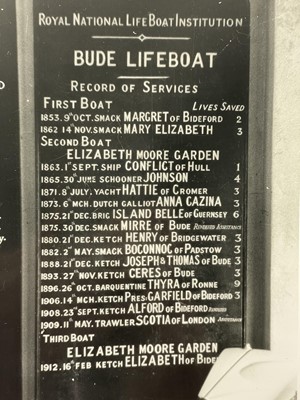 ROYAL NATIONAL LIFE BOAT INSTITUTION
BUDE LIFEBOAT
RECORD OF SERVICES
FIRST BOAT LIVES SAVED
1853. 9TH OCT. SMACK MARGRET OF BIDEFORD 2
1862 14TH NOV. SMACK MARY ELIZABETH 3
SECOND BOAT
ELIZABETH MOORE GARDEN
1863. 1ST SEPT. SHIP CONFLICT OF HULL 1
1865. 30TH JUNE SCHOONER JOHNSON 4
1871. 8TH JULY. YACHT HATTIE OF CROMER 3
1873. 6TH MCH. DUTCH GALLIOT ANNA CAZINA 3
1875. 21ST DEC. BRIG ISLAND BELLE OF GUERNSEY 6
1875. 30TH DEC. SMACK MIRRE OF BUDE RENDERED ASSISTANCE
1880. 21ST DEC. KETCH HENRY OF BRIDGEWATER 3
1882. 2ND MAY. SMACK BOCONNOC OF PADSTOW 3
1888. 21ST DEC. KETCH JOSEPH & THOMAS OF BUDE 3
1893. 27TH NOV. KETCH CERES OF BUDE 3
1896. 26TH OCT. BARQUENTINE THYRA OF RONNE 9
1906. 14TH MCH. KETCH PRES GARFIELD OF BIDEFORD 3
1908. 23RD SEPT. KETCH ALFORD OF BIDEFORD
1909. 11TH MAY. TRAWLER SCOTIA OF LONDON ASSISTANCE
THIRD BOAT
ELIZABETH MOORE GARDEN
1912. 16TH FEB KETCH ELIZABETH OF